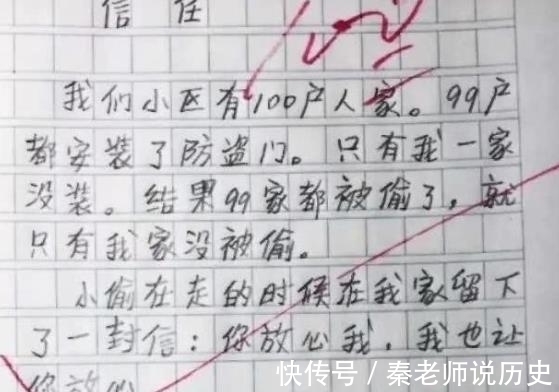 信任
我们小区有100户人家。99户
都安装了防盗门。只有我一家
没装。结果99家都被偷了，就
只有我家没被偷。
小偷在走的时候在我家留下
了一封信：你放心我，我也让
你放心
快传号/秦老师说历史